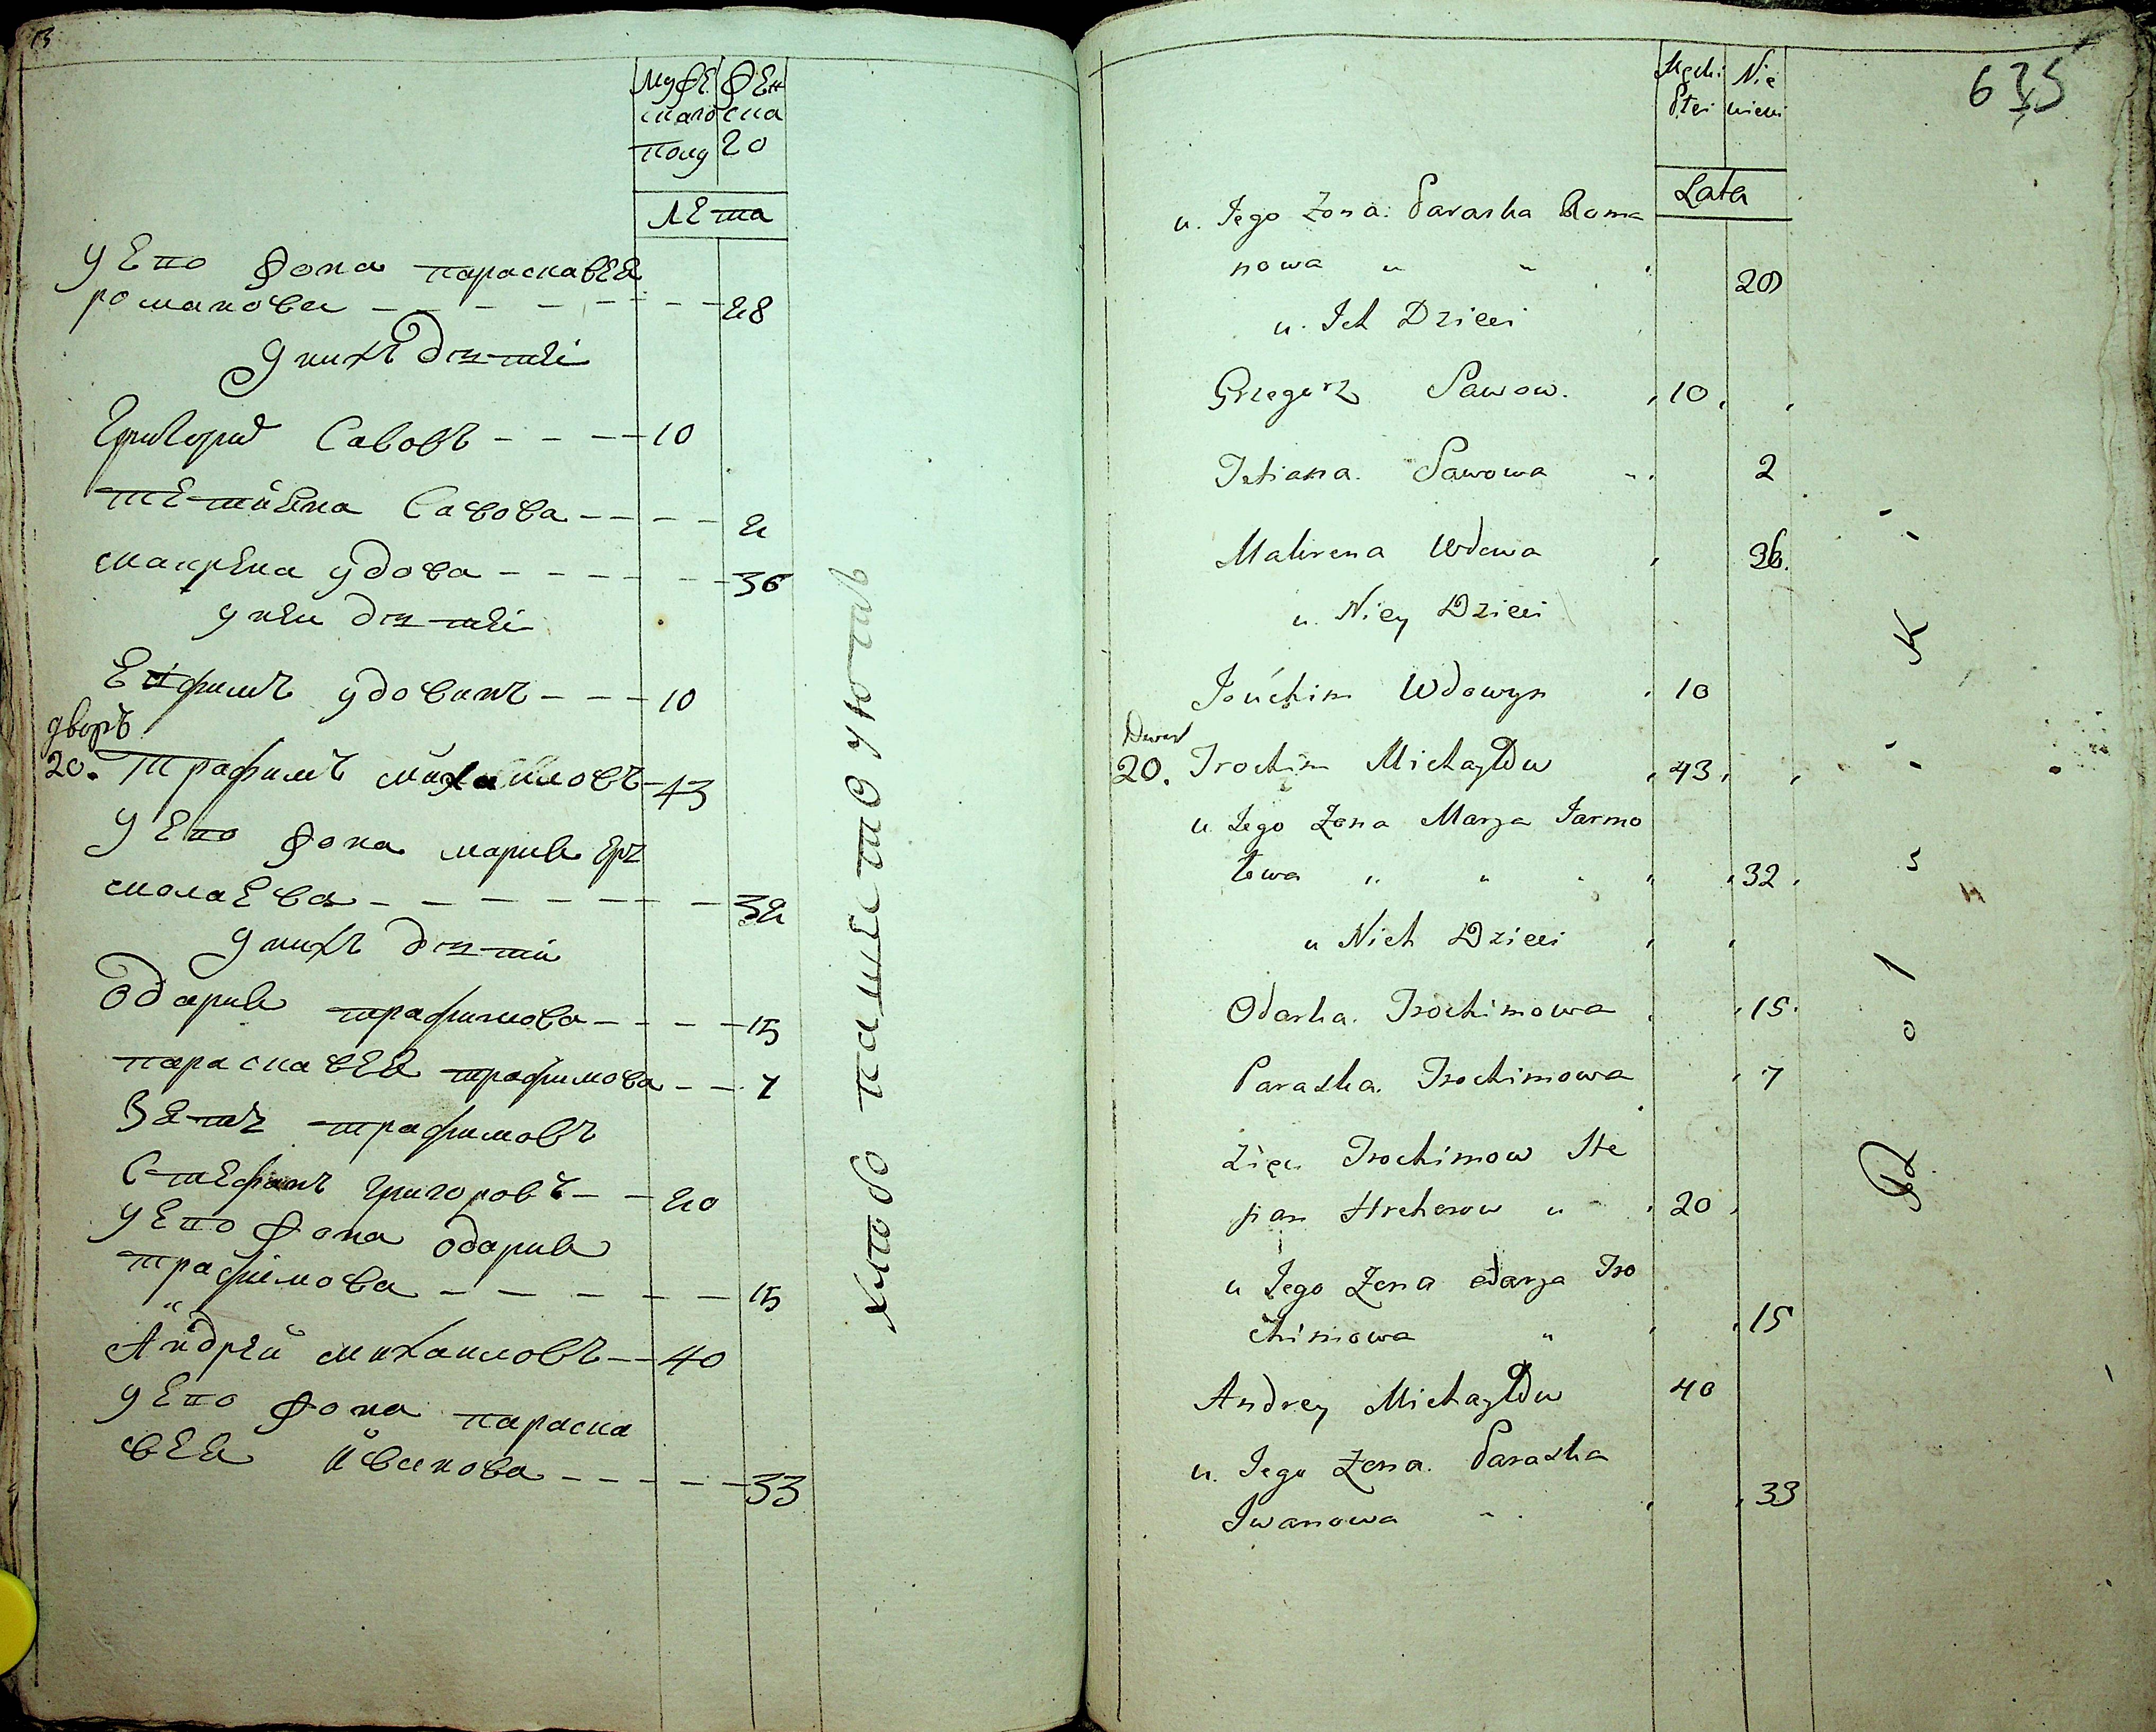 13
Муже Жен
скаго ска
полу го
Лета
у его жона параскавея
романова 28
у нихъ дети
Григорий Савовъ 10
тетияна Савова 2
макрена удова 36
у неи дети
Ефимъ удовинъ 10
дворъ
20. Трафимъ михаиловъ 43
у его жона мария ер
молаева 32
у нихъ дети
Одария трафимова 15
параскавея трафимова 7
Зеть трафимовъ
Стефанъ григоровъ 20
у его жона одария
трафимова 15
Андрей михаиловъ 40
у его жона параска
вея иванова 33
635
Męski Nie
wieści
Lata
u. Jego Żona. Paraska Roma
nowa 28
u. Ich Dzieci
Grzegorz Sawow. 10
Tetiana. Sawowa 2
Makrena Wdowa 36.
u. Niey Dzieci
Jouchim Wdowyn 10
Dwor
20. Trochim Michayłow 43
u Jego Żona Marya Jarmo
łowa 32
u Nich Dzieci
Odarka. Trochimowa 15
Paraska. Trochimowa 7
Zięć Trochimow Ste
pan Hrehorow 20
u Jego Żona odarya Tro
chimowa 15
Andrey Michayłow 40
u. Jego Żona. Paraska
Iwanowa 33